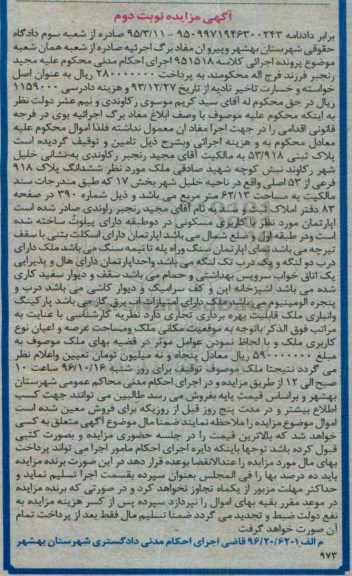 آگهی مزایده نوبت دوم
برابر دادنامه ۹۵۰۹۹۷۱۹۴۶۳۰۰۲۴۳ - ۹۵/۳/۱۱ صادره از شعبه سوم دادگاه
حقوقی شهرستان بهشهر وپیرو ان مفاد برگ اجرائیه صادره از شعبه همان شعبه
موضوع پرونده اجرائی کلاسه ۹۵۱۵۱۸ اجرای احکام مدنی محکوم علیه مجید
رنجبر فرزند فرج اله محکومند به پرداخت ۲۸۰۰۰۰۰۰۰ ریال به عنوان اصل
خواسته و خسارت تاخیر تادیه از تاریخ ۹۳/۱۲/۲۷ و هزینه دادرسی ۱۱۵۹۰۰۰
ریال در حق محکوم له آقای سید کریم موسوی رکاوندی و نیم عشر دولت نظر
به اینکه محکوم علیه موصوف با وصف ابلاغ مفاد برگ اجرائیه بوی در فرجه
قانونی اقدامی را در جهت اجرا مفاد ان معمول نداشته فلذا اموال محکوم علیه
معادل محکوم به و هزینه اجرائی وبشرح ذیل تامین و توقیف گردیده است
پلاک ثبتی ۵۳/۹۱۸ به مالکیت آقای مجید رنجبر رکاوندی به‌نشانی خلیل
شهر رکاوند نبش کوچه شهید صادقی ملک مورد نظر ششدانگ پلاک ۹۱۸
فرعی از ۵۳ اصلی واقع در ناحیه خلیل شهر بخش ۱۷ که طبق مندرجات سند
مالکیت به مساحت ۶۲/۱۳ متر مربع می باشد و ذیل شماره ۳۹۰ در صفحه
۸۳ دفتر املاک به نام آقای مجید رنجبر راوندی صادر شده است
اپارتمان مورد نظر با کاربری مسکونی در دوطبقه دارای پیلوت ساخته شده
است ودر طبقه اول و ضلع شمال می باشد اپارتمان دارای اسکلت بتنی با سقف
تیرچه می باشد نمای اپارتمان سنگ وراه پله تا نیمه سنگ می باشد ملک دارای
درب دو لنگه و یک درب تک لنگه می باشد واحدپارتمان دارای هال و پذیرایی
یک اتاق خواب سرویس بهداشتی و حمام می باشد سقف و دیوار سفید کاری
شده می باشد اشپزخانه اپن و کف سرامیک و دیوار کاشی می باشد درب و
پنجره الومینیوم می باشد ملک دارای امتیازات اب برق گاز می باشد پارکینگ
وانباری ملک قابلیت بهره برداری تجاری دارد نظریه کارشناسی با عنایت به
مراتب فوق الذکر باتوجه به موقعیت مکانی ملک ومساحت عرصه و اعیان نوع
کاربری ملک و با لحاظ نمودن عوامل موثر در قضیه بهای ملک موصوف به
مبلغ ۵۹۰۰۰۰۰۰۰ ریال معادل پنجاه و نه میلیون تومان تعیین واعلام نظر
می گردد نتیجتا ملک موصوف توقیف برای روز شنبه ۹۶/۱۰/۱۶ ساعت ۱۰
صبح الی ۱۲ از طریق مزایده و در اجرای احکام مدنی محاکم عمومی شهرستان
بهشهر و براساس قیمت پایه بفروش می رسد طالبین می توانند جهت کسب
اطلاع بیشتر و در مدت پنج روز قبل از روزیکه برای فروش معین شده است
اموال موضوع مزایده را ملاحظه نمایند ضمنا مال موضوع آگهی متعلق به کسی
خواهد شد که بالاترین قیمت را در جلسه حضوری مزایده و بصورت کتبی
قبول کرده باشد توجها باینکه دایره اجرای احکام مامور اجرا می تواند پرداخت
بهای مال مورد مزایده را عندالاقتضا بوعده قرار دهد در این صورت برنده مزایده
باید ده درصد بها را فی المجلس بعنوان سپرده بقسمت اجرا تسلیم نماید و
حداکثر مهلت مزبور از یکماه تجاوز نخواهد کرد و در صورتی که برنده مزایده
در موعد مقرر بقیه بهای اموال را نپردازد سپرده پس از کسر هزینه مزایده به
نفع دولت ضبط و تجدید می گردد ضمنا تسلیم مال فقط بعد از پرداخت تمام
آن صورت خواهد گرفت
م الف ۹۶/۲۰/۶۲۰۱ قاضی اجرای احکام مدنی دادگستری شهرستان بهشهر
۹۷۳